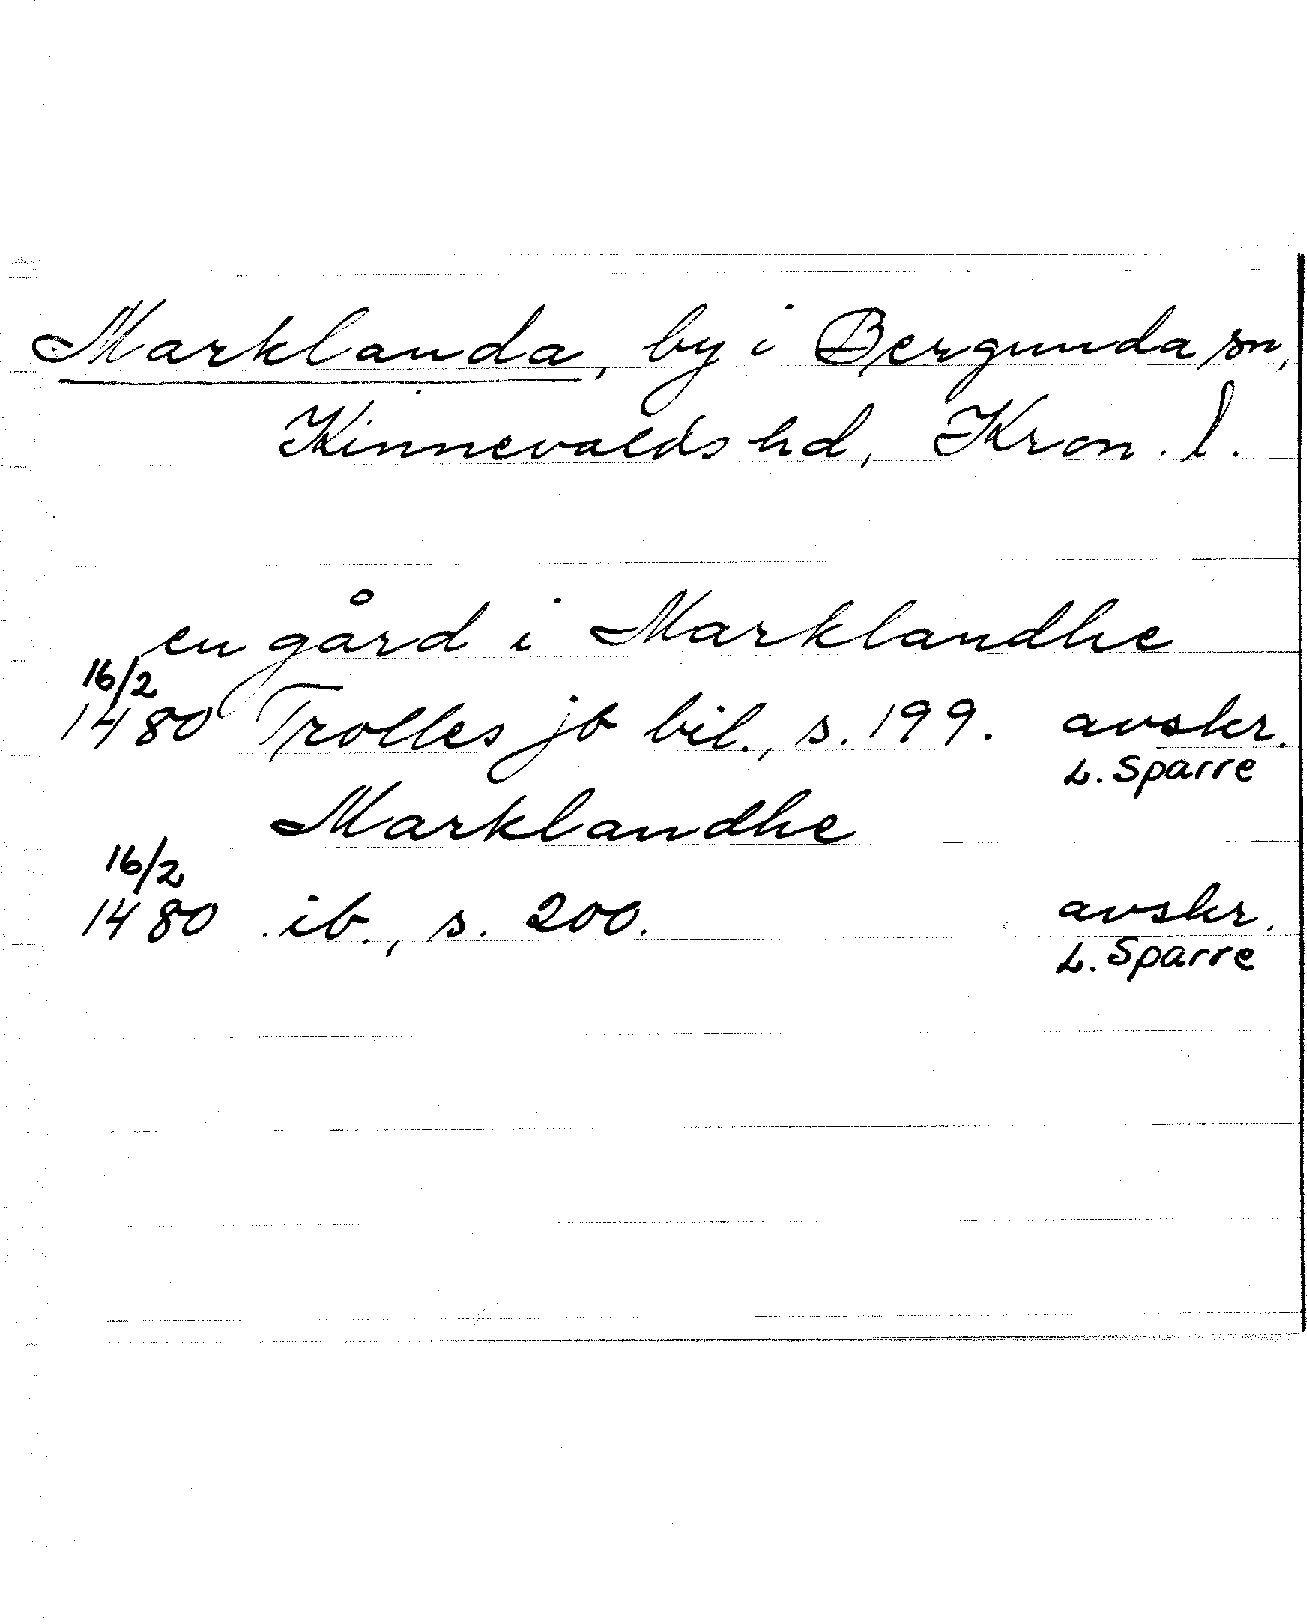 Marklanda, by i Bergunda sn,
Kinnevalds hd, Kron. l.
en gård i Marklandhe
16/2
1480 Trolles jb bil., s. 199. avskr.
L. Sparre
Marklandhe
16/2
1480 ib., s. 200. avskr.
L. Sparre